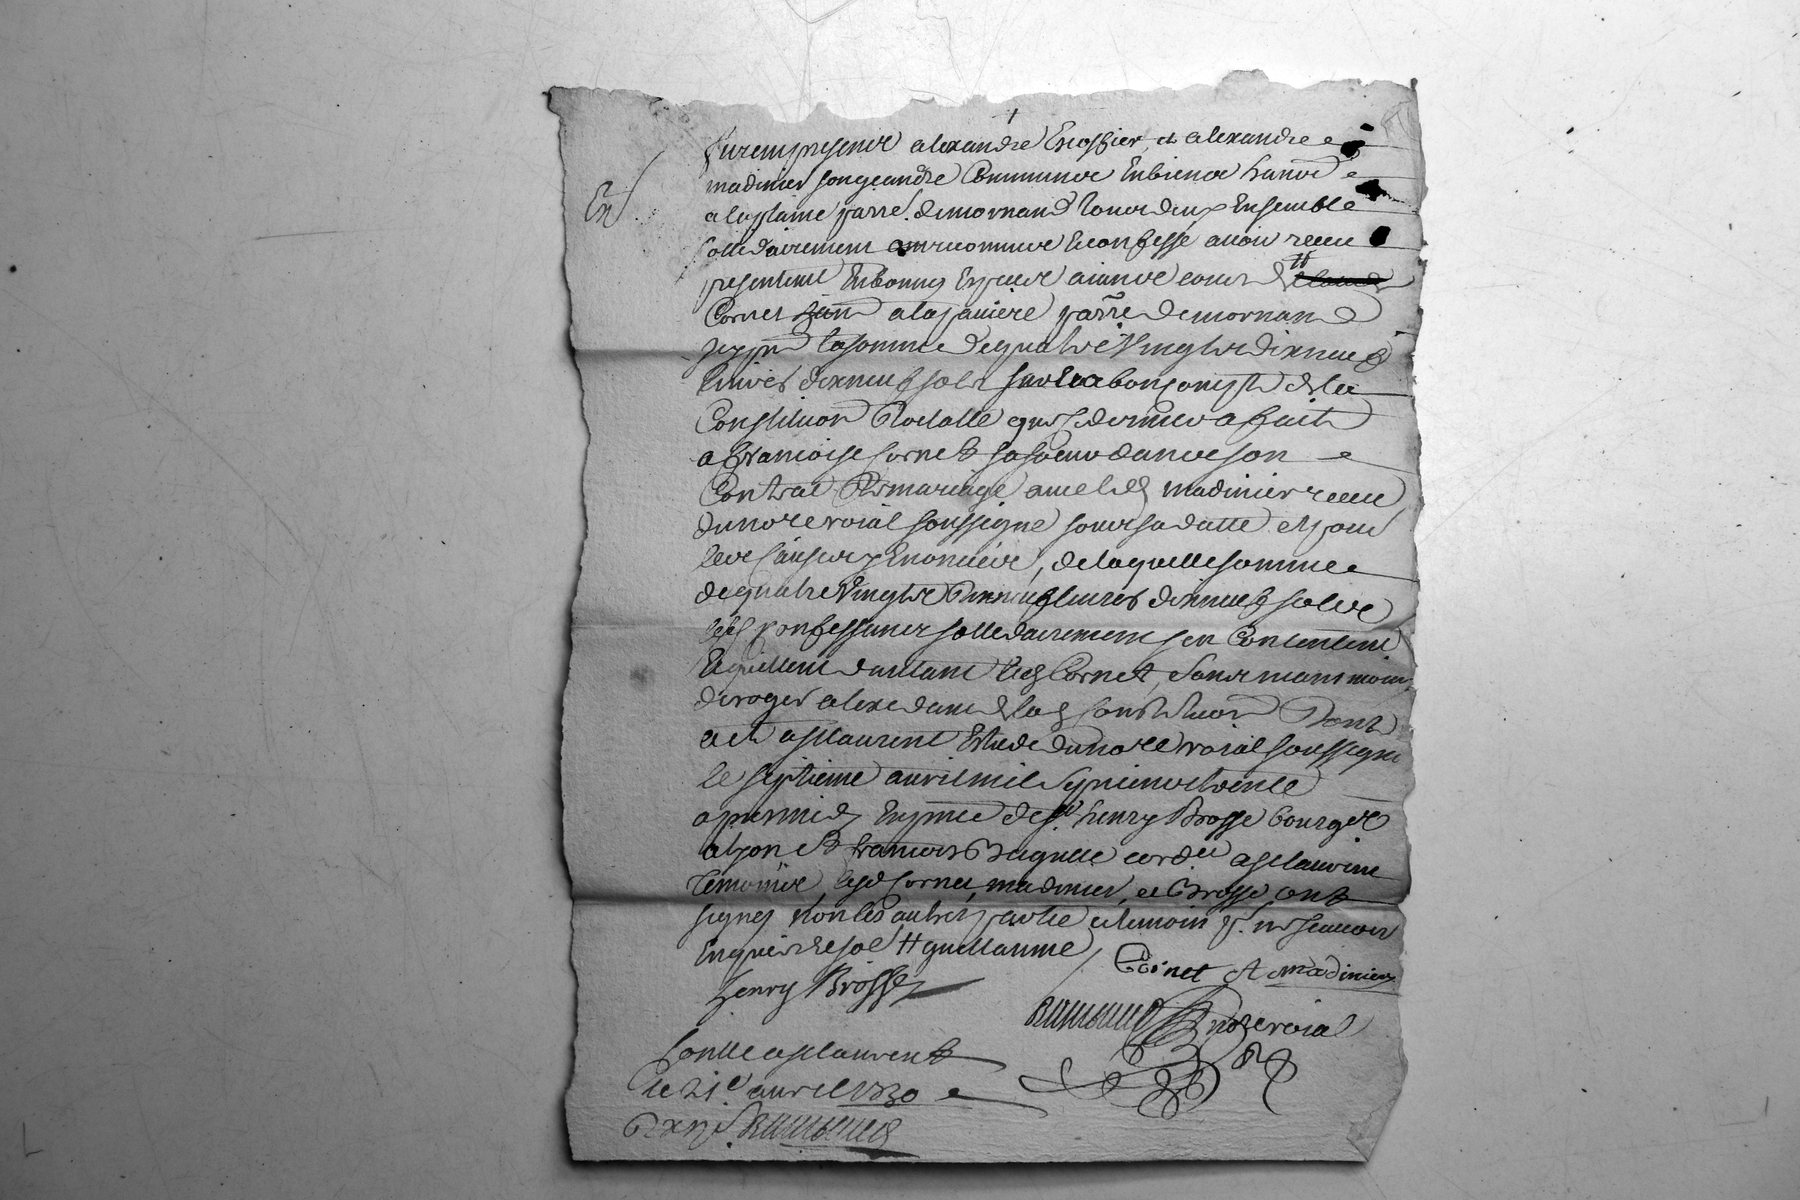 furent presents alexandre Escoffier, et alexandre
madinier son gendre Communs En biens hants
a la plaine parre. de mornand tous deux Ensemble
sollidairement ont reconnus & confesse avoir receu
presentemt En bonnes Especes aiants cours de claude
Cornet hant a la paniere parre de mornand
icy pnt la somme de quatre Vingts dix neuf
livres dix neuf sols sur et a bon compte de la
Constituon dotalle que ce dernier a fait
a francoise Cornet sa soeur dans son
Contrat de mariage avec led madinier receu
du nore roial soussigne sous sa datte et pour
les causes y Enoncées, de laquelle somme
de quatre Vingts dix neuf livres dix neuf sols
lesd confessants sollidairement sen Contentent
& quittent dautant led Cornet, sans neanmoins
deroger a lexedant de lad Constituon Dont
acte a st laurent Etude du nore roial soussigne
le septieme avril mil sept cents trente
apres midy En pnce de sr henry Brosse bourgeois
a lyon et francois cord a st laurent
temoins lesd Cornet, madinier, et Brosse ont
signes non les autres partie et temoin p. ne scavoir
Enquis de ce # guillaume
Cornet A madinier
henry Brosse
nore roial
Conlle a st laurent
le 21e avril 1730